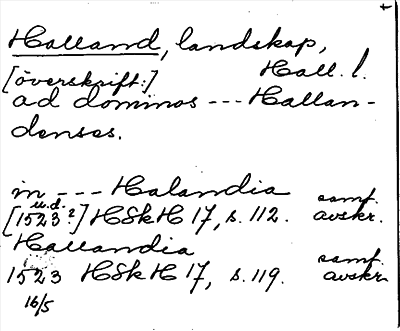 Halland, landskap,
Hall. l.
[överskrift:]
ad dominos --- Hallan-
denses.
in --- Halandia
u.d. samf.
[1523?] HSkH 17, s. 112. avskr.
Hallandia
samf.
1523 HSkH 17, s. 119. avskr.
16/5